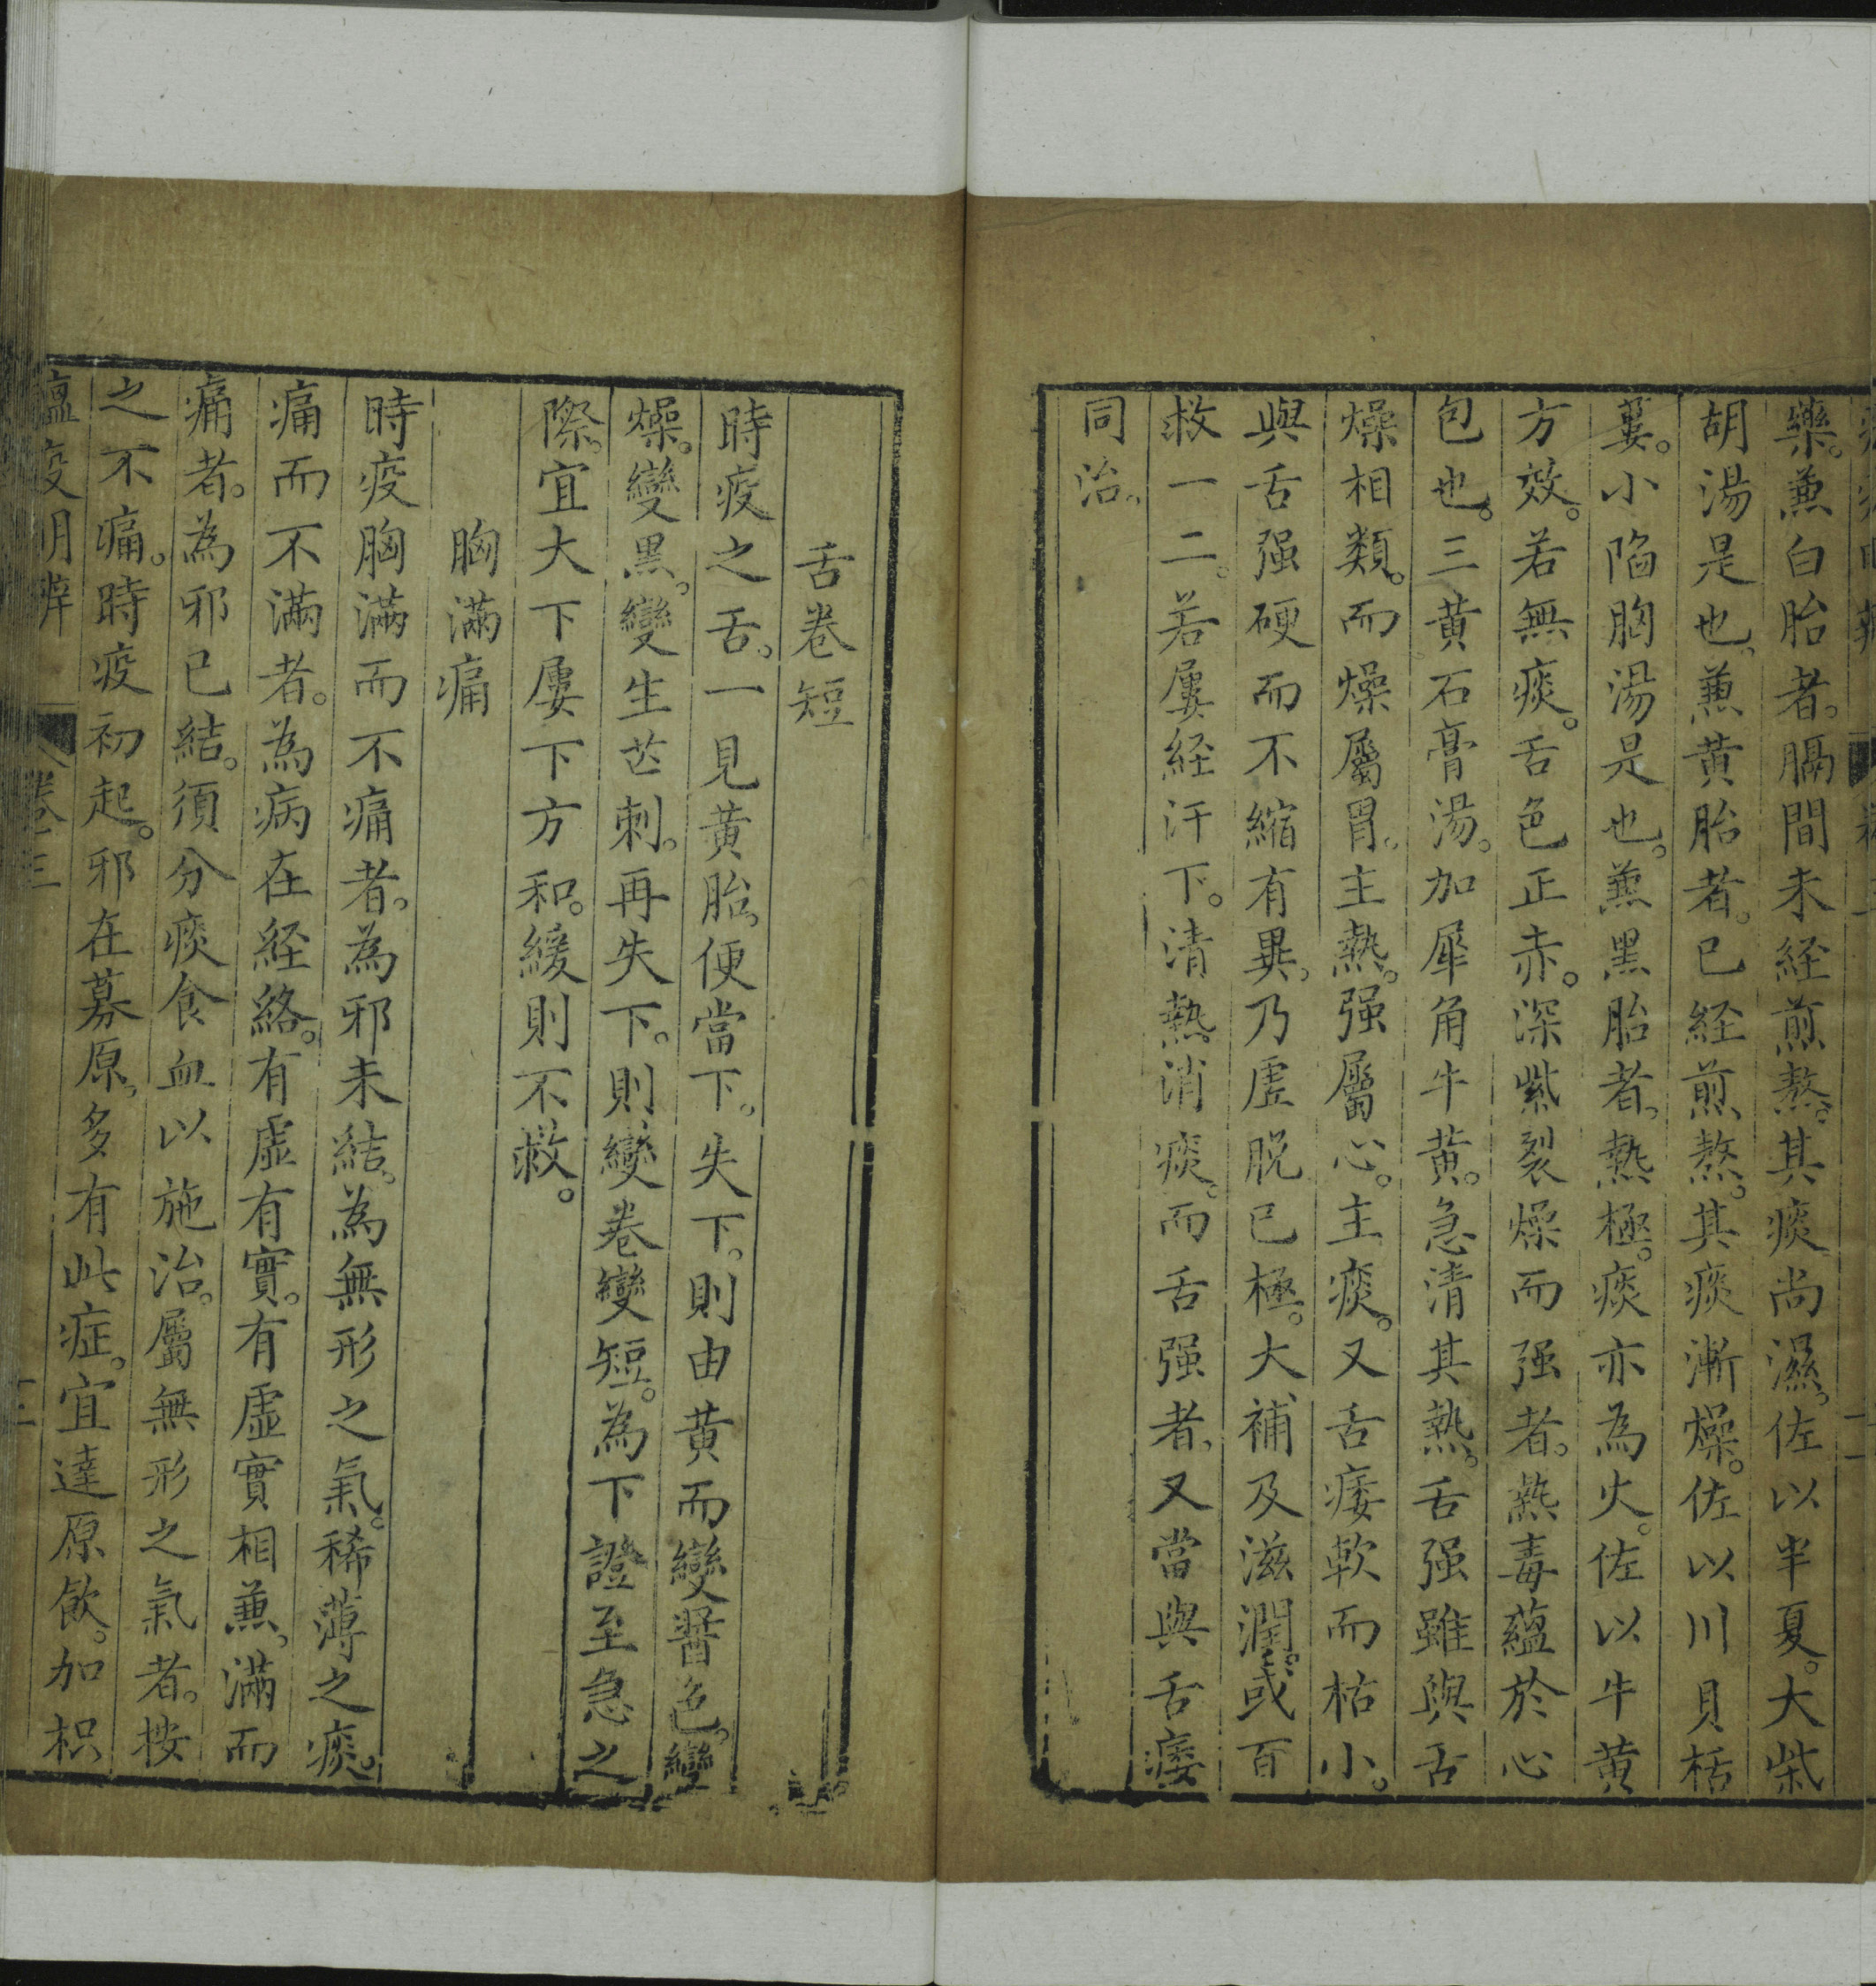 藥。兼白胎者。膈間未経煎熬。其痰尚濕。佐以半夏。大柴
胡湯是也。兼黄胎者。已経煎熬。其痰漸燥。佐以川貝栝
蔞。小陷胸湯是也。兼黑胎者。熱極。痰亦為火。佐以牛黄
方效。若無痰。舌色正赤。深紫裂燥而强者。熱毒蘊於心
包也。三黄石膏湯。加犀角牛黄。急清其熱。舌强雖與舌
燥相類。而燥屬胃。主熱。强屬心。主痰。又舌痿軟而枯小。
與舌强硬而不縮有異。乃虛脱已極。大補及滋潤。或百
救一二。若屢経汗下。清熱消痰。而舌强者。又當與舌痿
同治。
舌卷短
時疫之舌。一見黄胎。便當下。失下。則由黄而變醬色。變
燥。變黑。變生芒刺。再失下。則變卷變短。為下證至急之
際。宜大下屢下方和。緩則不救。
胸滿痛
時疫胸滿而不痛者。為邪未結。為無形之氣。稀薄之痰。
痛而不滿者。為病在経絡。有虛有實。有虛實相兼。滿而
痛者。為邪已結。須分痰食血以施治。屬無形之氣者。按
之不痛。時疫初起。邪在募原。多有此症。宜達原飲。加枳
瘟疫明辨 卷三 十二